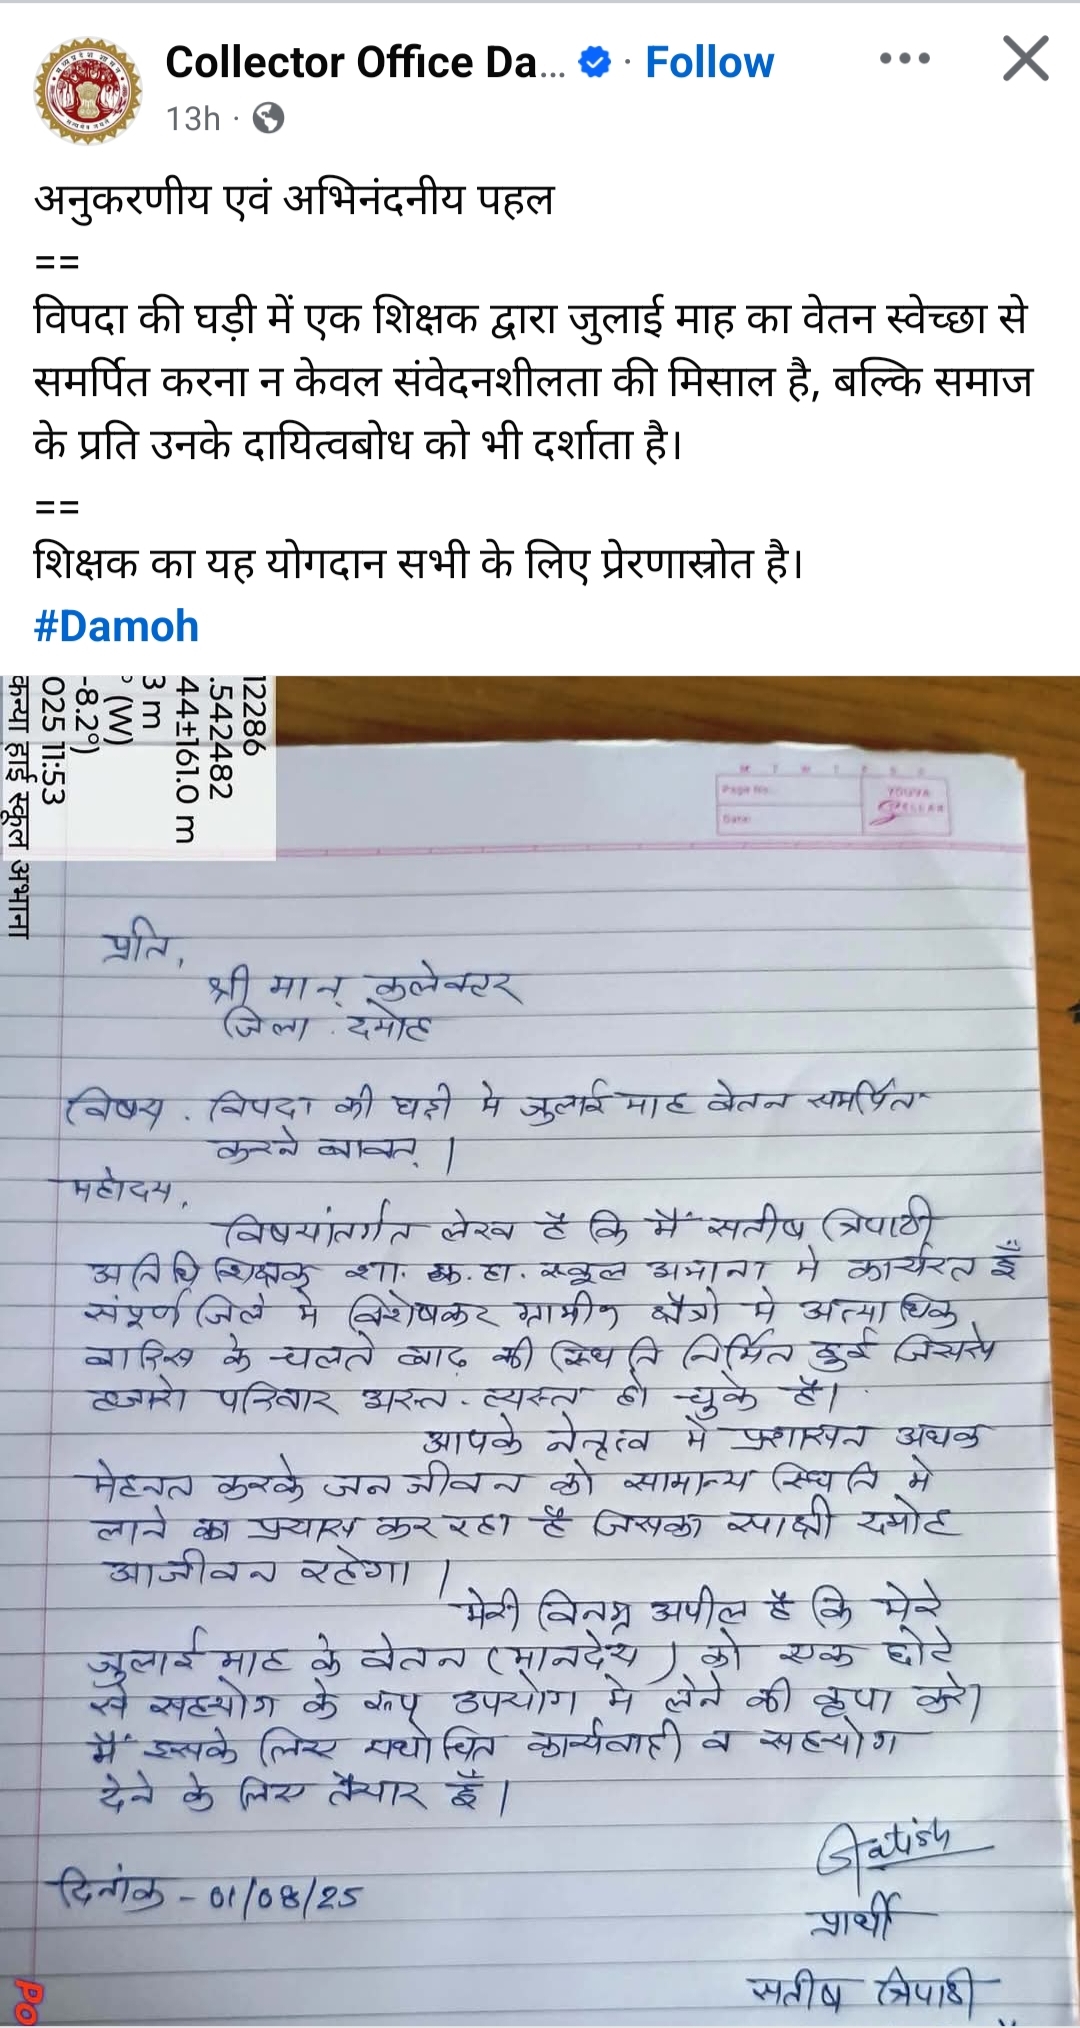 Collector Office Da... · Follow
13h ·
अनुकरणीय एवं अभिनंदनीय पहल
==
विपदा की घड़ी में एक शिक्षक द्वारा जुलाई माह का वेतन स्वेच्छा से
समर्पित करना न केवल संवेदनशीलता की मिसाल है, बल्कि समाज
के प्रति उनके दायित्वबोध को भी दर्शाता है।
==
शिक्षक का यह योगदान सभी के लिए प्रेरणास्रोत है।
#Damoh
12286
.542482
44±161.0 m
3 m
° (W)
-8.2°)
025 11:53
कन्या हाई स्कूल अभाना
Page No.
Date:
YOUVA
प्रति,
श्री मान् कलेक्टर
जिला . दमोह
विषय . विपदा की घड़ी मे जुलाई माह वेतन समर्पित
करने बावत् |
महोदय,
विषयांतर्गत लेख है कि मैं सतीष त्रिपाठी
अतिथि शिक्षक शा. क. हा. स्कूल अभाना मे कार्यरत हूँ
संपूर्ण जिले मे विशेषकर ग्रामीण क्षेत्रो मे अत्याधिक
बारिस के चलते बाढ़ की स्थिति निर्मित हुई जिससे
हजारो परिवार अस्त-व्यस्त हो चुके है।
आपके नेतृत्व में प्रशासन अथक
मेहनत करके जन जीवन को सामान्य स्थिति मे
लाने का प्रयास कर रहा है जिसका साक्षी दमोह
आजीवन रहेगा |
मेरी विनम्र अपील है कि मेरे
जुलाई माह के वेतन (मानदेय) को एक छोटे
से सहयोग के रूप उपयोग मे लेने की कृपा करे।
मैं इसके लिए यथोचित कार्यवाही व सहयोग
देने के लिए तैयार हूँ |
Satish
दिनांक - 01/08/25
प्रार्थी
सतीष त्रिपाठी
Po